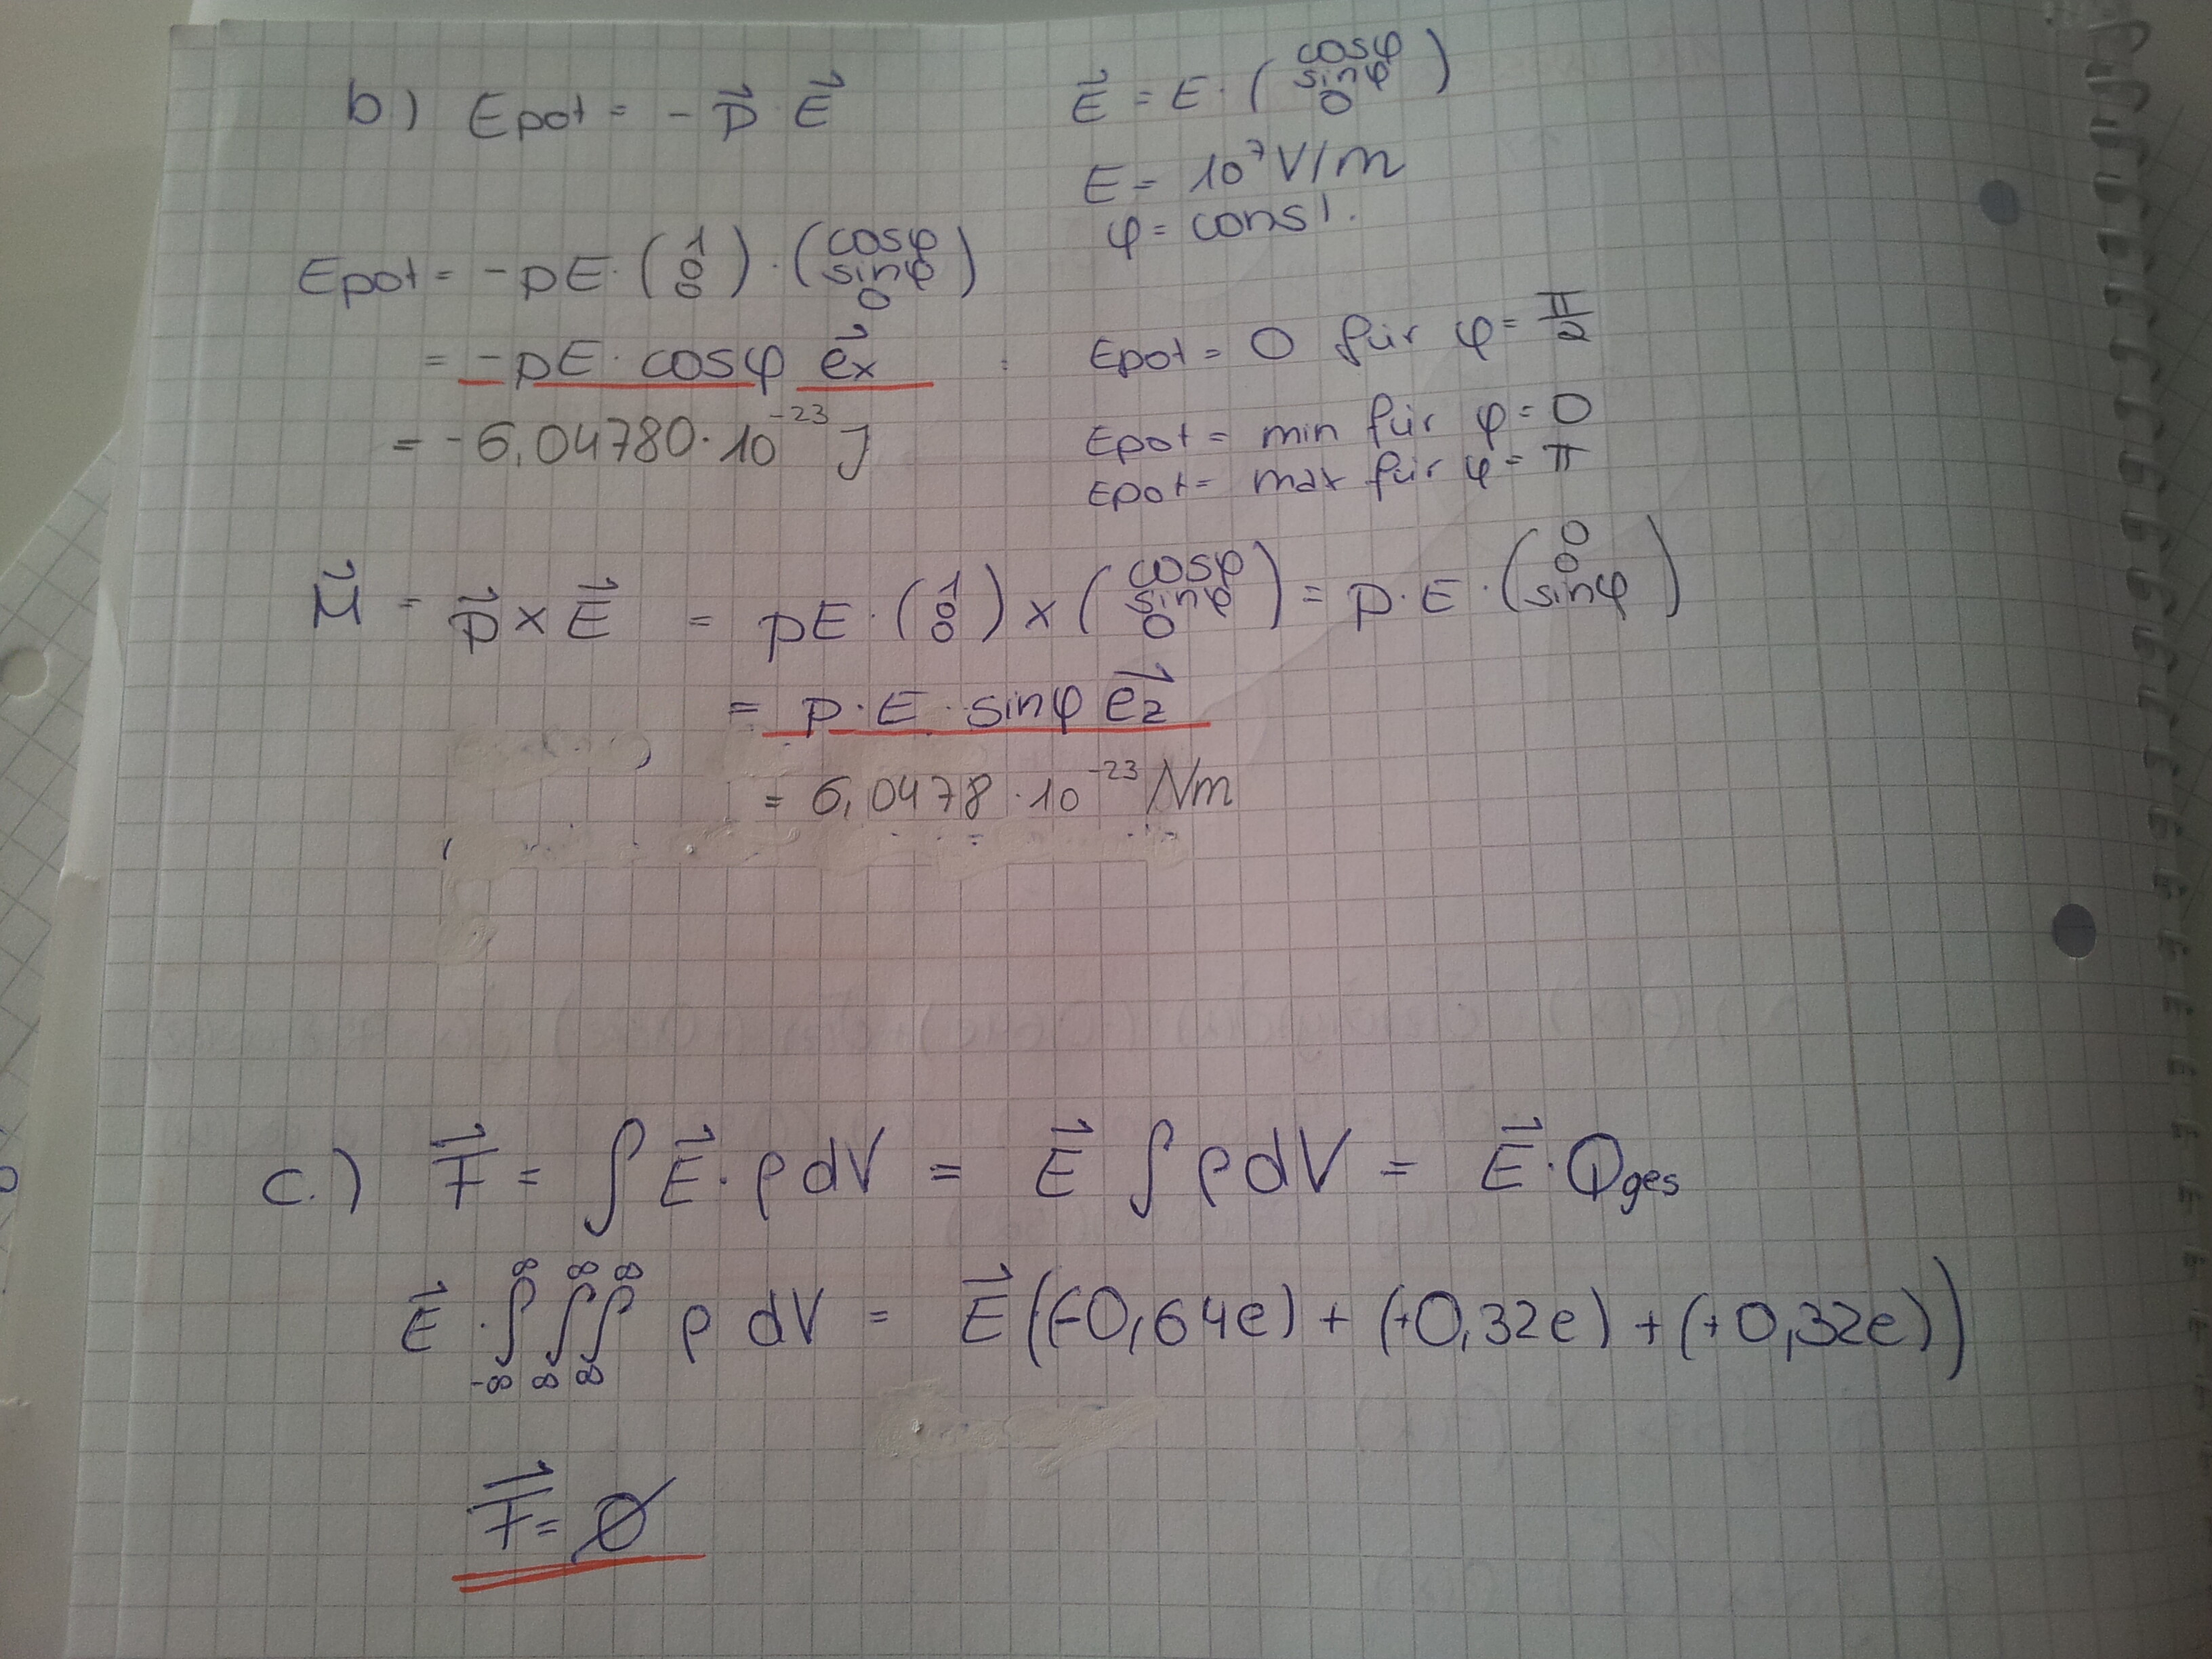 b) Epot = - p⃗ · E⃗
E⃗ = E · (cosφ sinφ 0)
E = 10⁷ V/m
φ = const.
Epot = -pE · (1 0 0) · (cosφ sinφ 0)
= -pE · cosφ e⃗x
Epot = 0 für φ = π/2
= -6,04780 · 10⁻²³ J
Epot = min für φ = 0
Epot = max für φ = π
M⃗ = p⃗ × E⃗ = pE · (1 0 0) × (cosφ sinφ 0) = p · E · (0 0 sinφ)
= p · E · sinφ e⃗z
= 6,0478 · 10⁻²³ Nm
c.) F⃗ = ∫ E⃗ · ρ dV = E⃗ ∫ ρ dV = E⃗ · Qges
E⃗ · ∫_{-∞}^{∞} ∫_{∞}^{∞} ∫_{∞}^{∞} ρ dV = E⃗ ((-0,64e) + (+0,32e) + (+0,32e))
F⃗ = 0̸